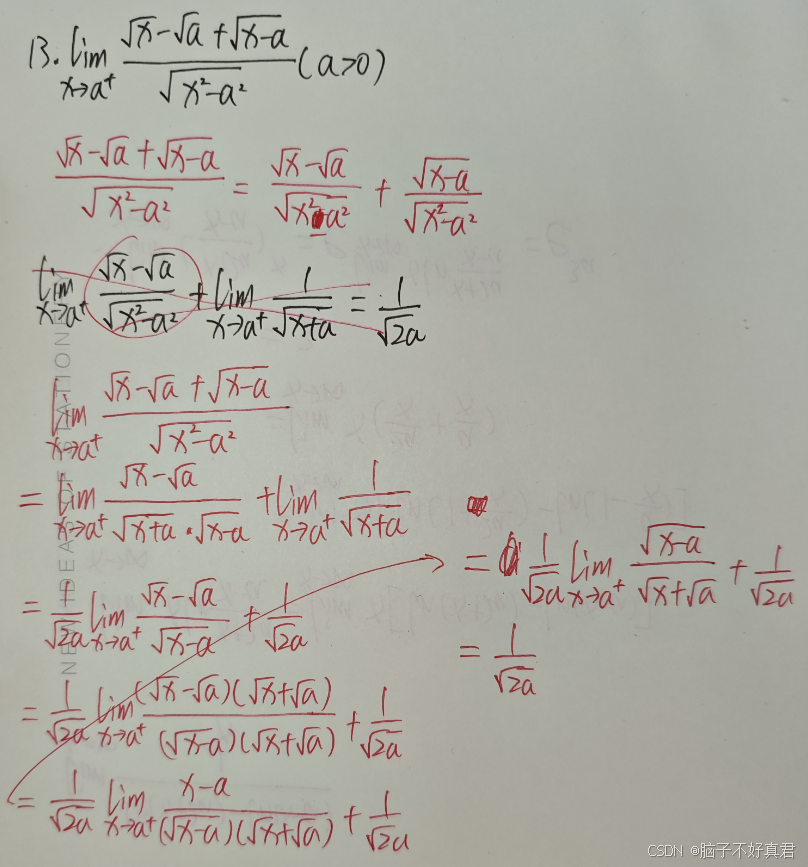 13. lim x→a⁺ (√x-√a+√(x-a))/√(x²-a²) (a>0)
(√x-√a+√(x-a))/√(x²-a²) = (√x-√a)/√(x²-a²) + √(x-a)/√(x²-a²)
lim x→a⁺ (√x-√a)/√(x²-a²) + lim x→a⁺ 1/√(x+a) = 1/√(2a)
lim x→a⁺ (√x-√a+√(x-a))/√(x²-a²)
= lim x→a⁺ (√x-√a)/(√(x+a)·√(x-a)) + lim x→a⁺ 1/√(x+a)
= 1/√(2a) lim x→a⁺ (√x-√a)/√(x-a) + 1/√(2a)
= 1/√(2a) lim x→a⁺ ((√x-√a)(√x+√a))/((√(x-a))(√x+√a)) + 1/√(2a)
= 1/√(2a) lim x→a⁺ (x-a)/((√(x-a))(√x+√a)) + 1/√(2a)
= 1/√(2a) lim x→a⁺ √(x-a)/(√x+√a) + 1/√(2a)
= 1/√(2a)
CSDN @脑子不好真君